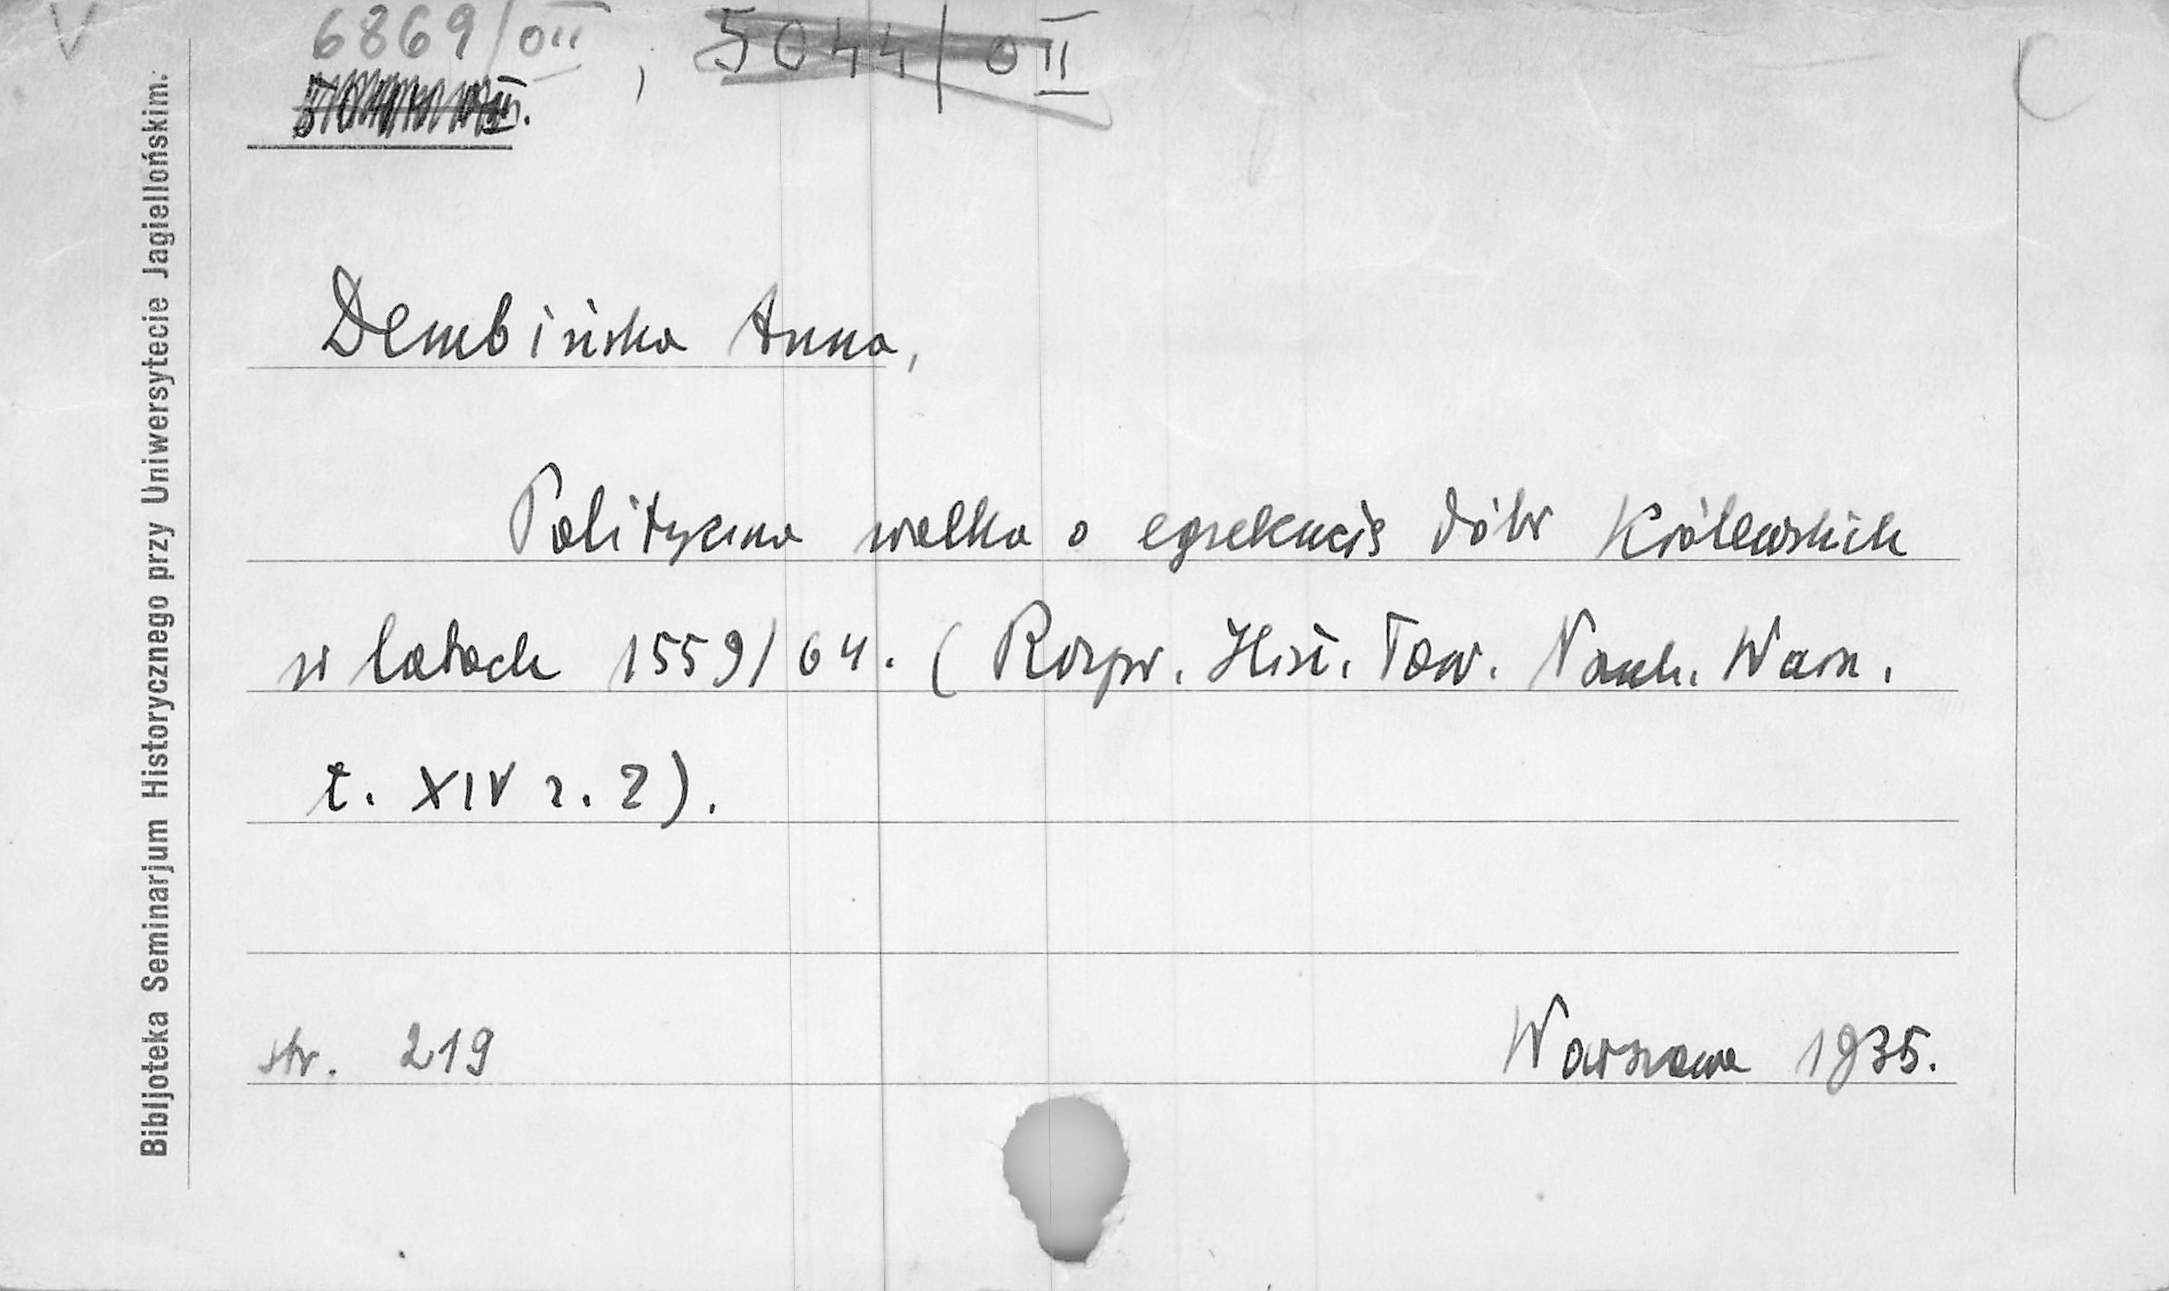 V 6869/OII , 5044/OII C
Bibljoteka Seminarjum Historycznego przy Uniwersytecie Jagiellońskim.
Dembińska Anna,
Polityczna walka o egzekucję dóbr królewskich
w latach 1559/64. (Rozpr. Hist. Tow. Nauk. Warsz.
t. XIV z. 2).
str. 219 Warszawa 1935.